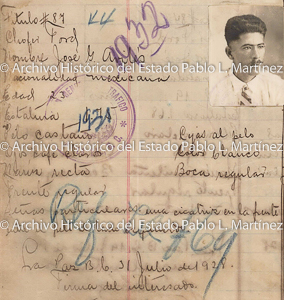 Titulo # 87 44
Chofer Ford 1932
Nombre José
© Archivo Histórico del Estado Pablo L. Martínez
Nacionalidad Mexicana
Edad
Estatura 1928
© Archivo Histórico del Estado Pablo L. Martínez
Pelo castaño Cejas al pelo
Ojos café claros Color blanco
Nariz recta Boca regular
Frente regular
© Archivo Histórico del Estado Pablo L. Martínez
Señas particulares una cicatriz en la frente
La Paz B.C. 31 Julio de 1928
Firma del interesado.
© Archivo Histórico del Estado Pablo L. Martínez